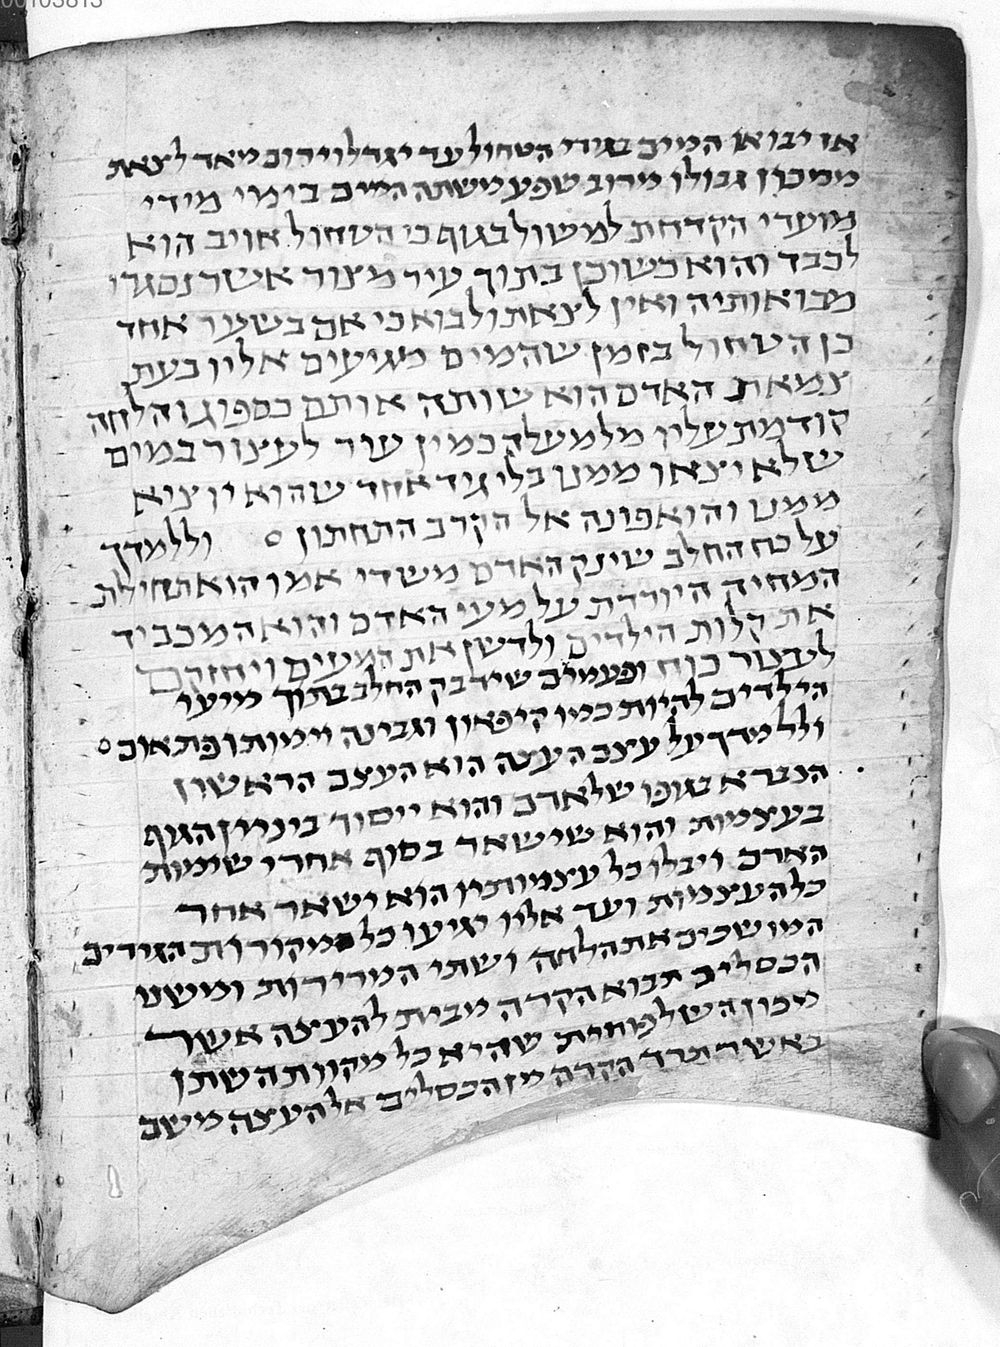 00103813
אז יבואו המים בגידי הטחול עד יגדל וירום מאד לצאת
ממכון גבולו מרוב שפע משתה המים בימי מידי
מועדי הקדחת למשול בגוף כי הטחול אויב הוא
לכבד והוא כשוכן בתוך עיר מצור אשר נסגרו
מבואותיה ואין לצאת ולבוא כי אם בשער אחד
כן הטחול בזמן שהמים מגיעים אליו בעת
צמאת האדם הוא שותה אותם כספוג והלחה
קודמת עליו מלמעלה כמין עור לעצור במים
שלא יצאו ממנו בלי גיד אחד שהוא יוציא
ממנו והוא פונה אל הקרב התחתון ○ וללמדך
על כח החלב שינק האדם משדי אמו הוא תחילת
המחיה היורדת על מעי האדם והוא המכביד
את קלות הילדים ולדשן את המעים ויחזרם
לעצור כוח ופעמים שידבק החלב בתוך מיעי
הילדים להיות כמו קיפאון וגבינה וימותו פתאום ○
וללמדך על עצם העצה הוא העצם הראשון
הנברא בגופו של אדם והוא ייסוד ביניין הגוף
בעצמות והוא שישאר בסוף אחרי שימות
האדם ויבלו כל עצמותיו הוא ישאר אחר
כל העצמות ועד אליו יגיעו כל מקורות הגידים
המושכים את הלחה ושתי המרירות ומשם
הכסלים תבוא הקרה מבית להעצה אשר
מכון השלפוחית שהיא כל מקוות השתן
כאשר תרד הקרה מן הכסלים אל העצה משם